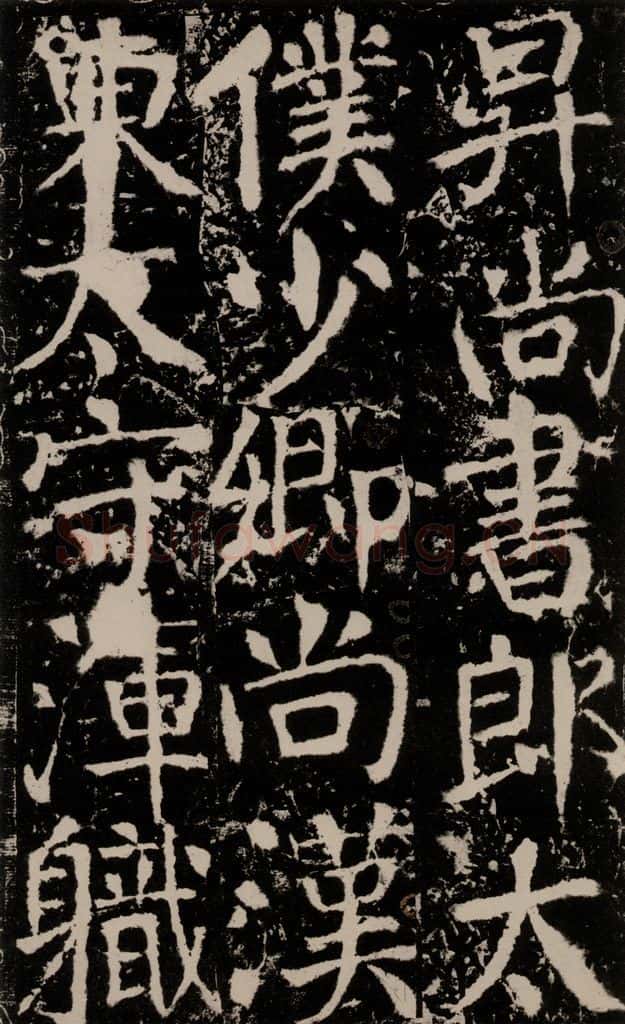 昇尚書郎太
僕少卿尚漢
東太守渾軄
Shufawang.CN